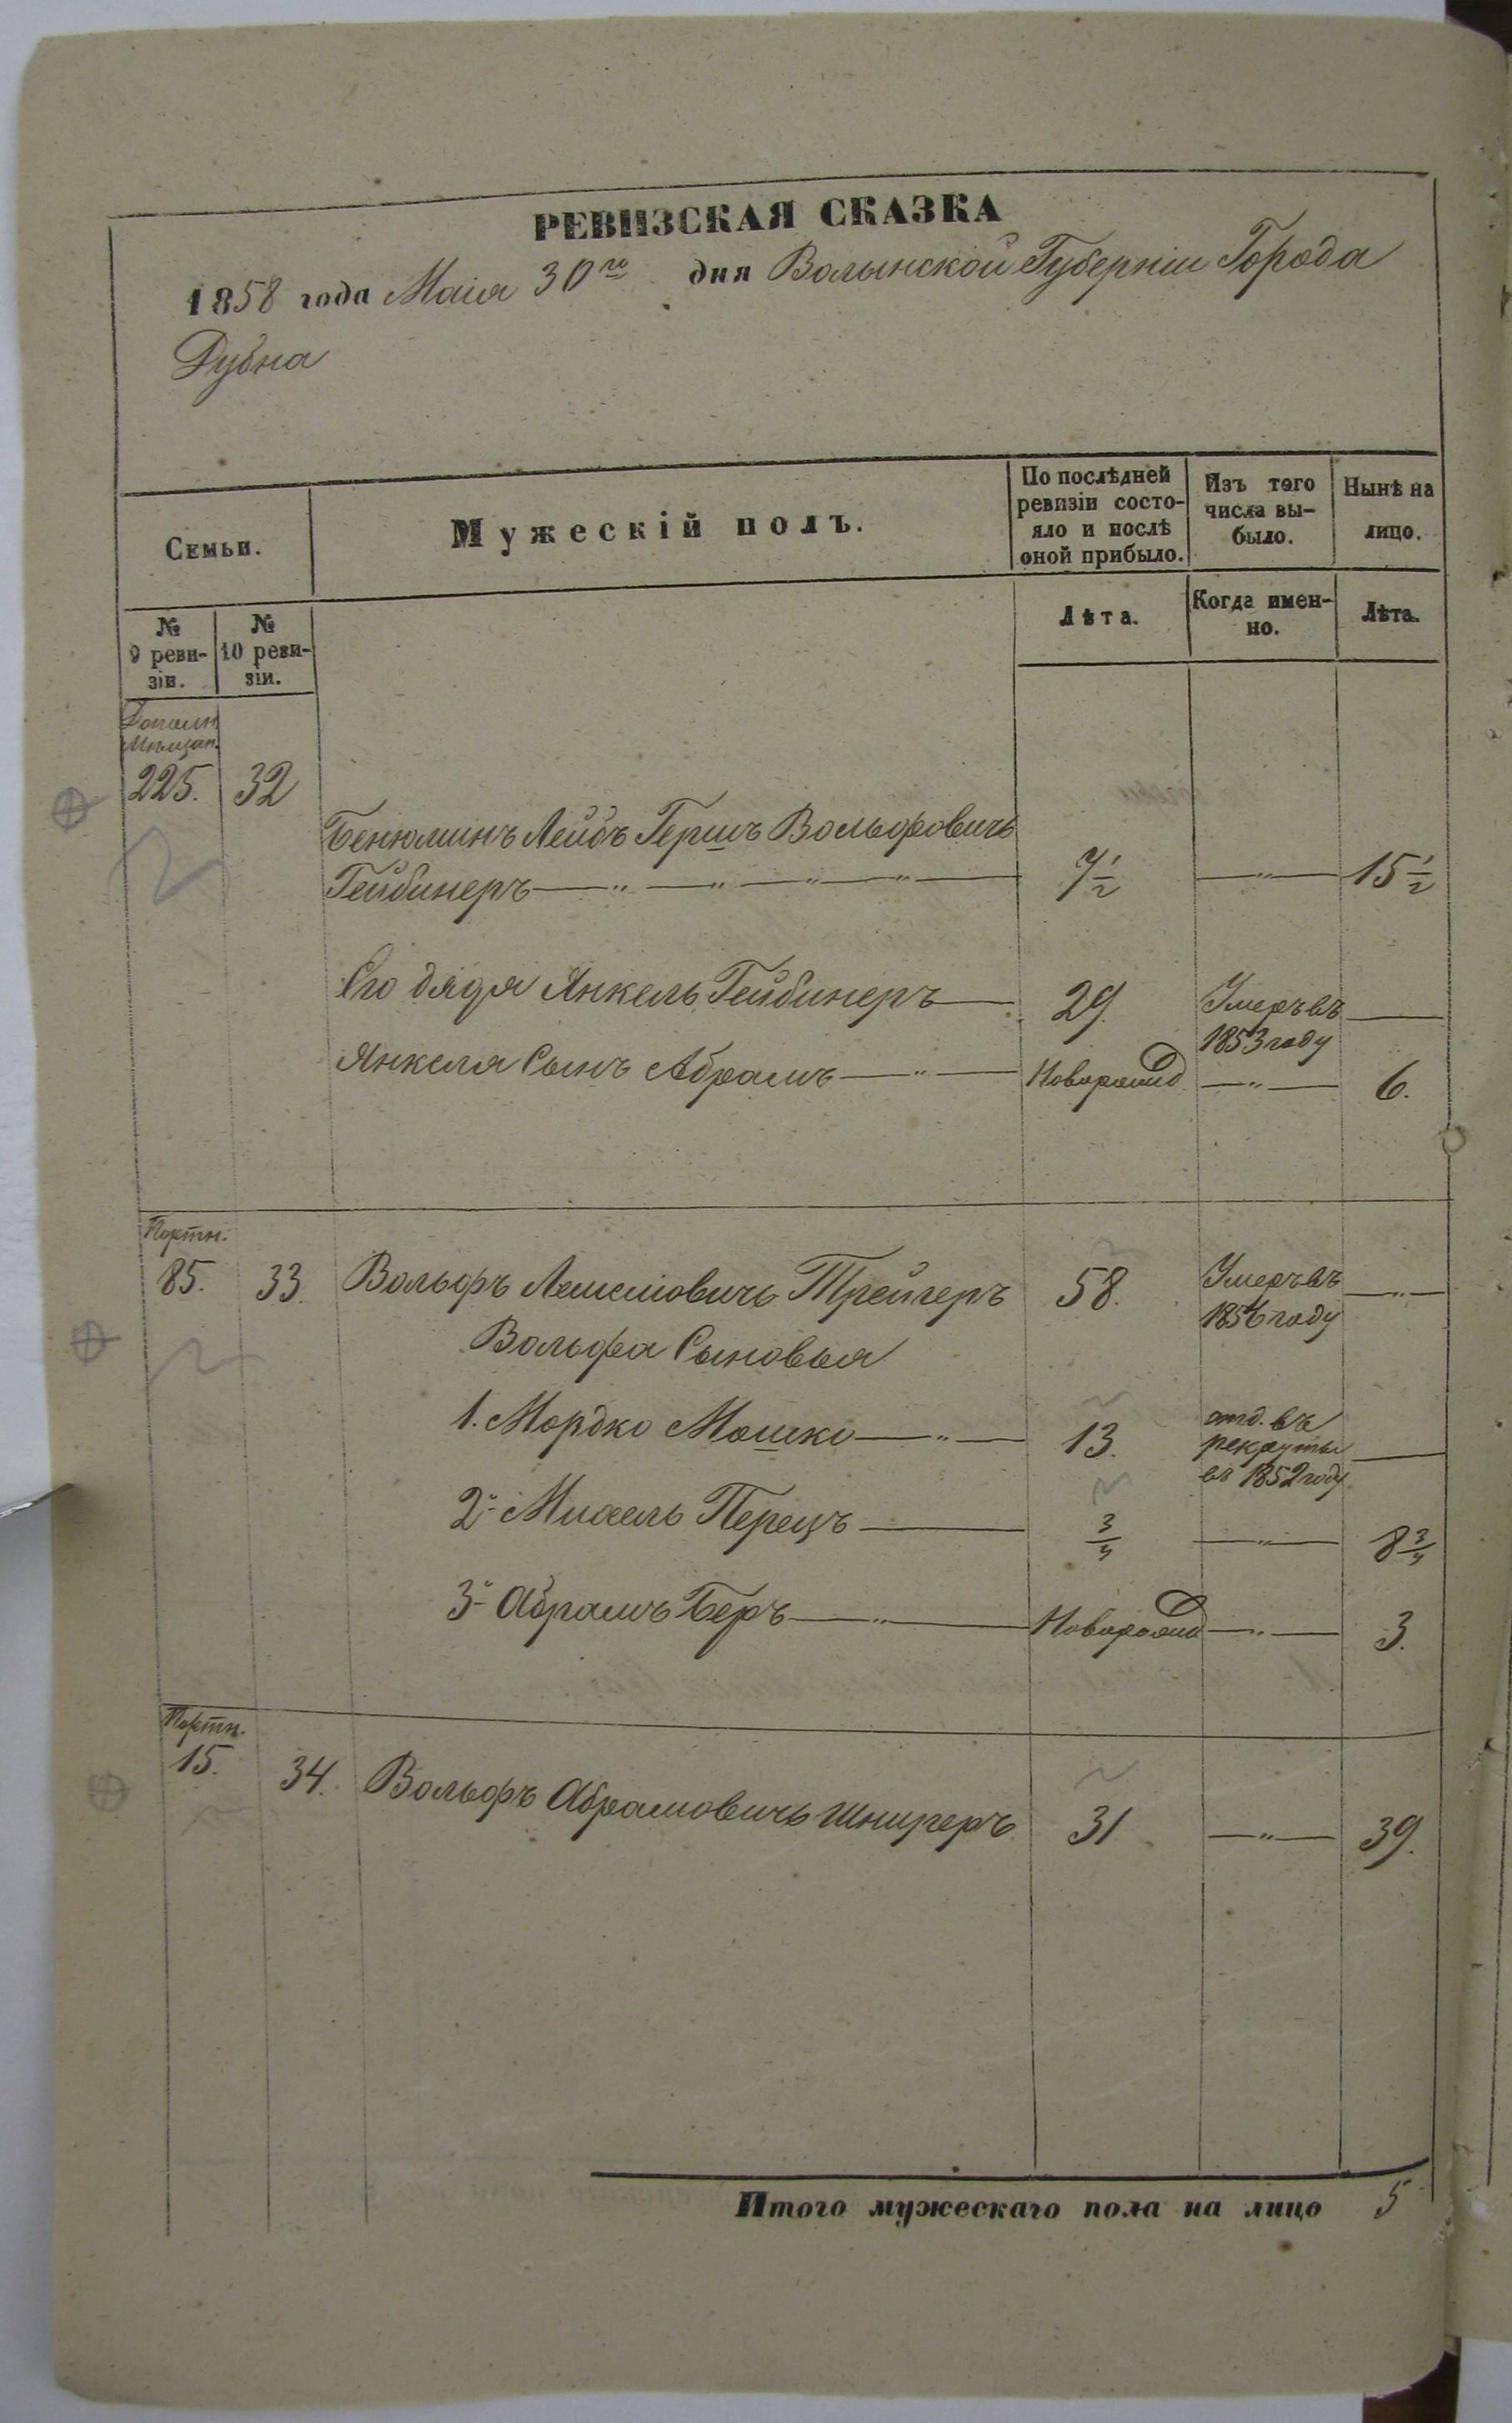 РЕВИЗСКАЯ СКАЗКА
1858 года Маія 30го дня Волынской Губерніи Города
Дубна
Семьи.
Мужескій полъ.
По послѣдней ревизіи состо-
яло и послѣ
оной прибыло.
Изъ того
числа вы-
было.
Нынѣ на
лицо.
№
9 реви-
зіи.
№
10 реви-
зіи.
Лѣта.
Когда имен-
но.
Лѣта.
Дополн
Мѣщан.
225. 32
Бенюминъ Лейбъ Гершъ Вольфовичъ
Гейбинеръ 7 1/2 — " — 15 1/2
Его дядя Янкель Гейбинеръ — 29. Умеръ въ
1853 году —
Янкеля Сынъ Абрамъ — " — Новорожд — " — 6.
Портн.
85. 33. Вольфъ Трейгеръ 58. Умеръ въ
1856 году — " —
Вольфа Сыновья
1. Мордко Мошко — " — 13. отд. въ
рекруты
въ 1852 году. —
2й Михель Перецъ — 3/4 — " — 8 3/4
3й Абрамъ Беръ — " — Новорожд — " — 3.
Портн.
15. 34. Вольфъ Абрамовичъ Шницеръ 31 — " — 39.
Итого мужескаго пола на лицо 5